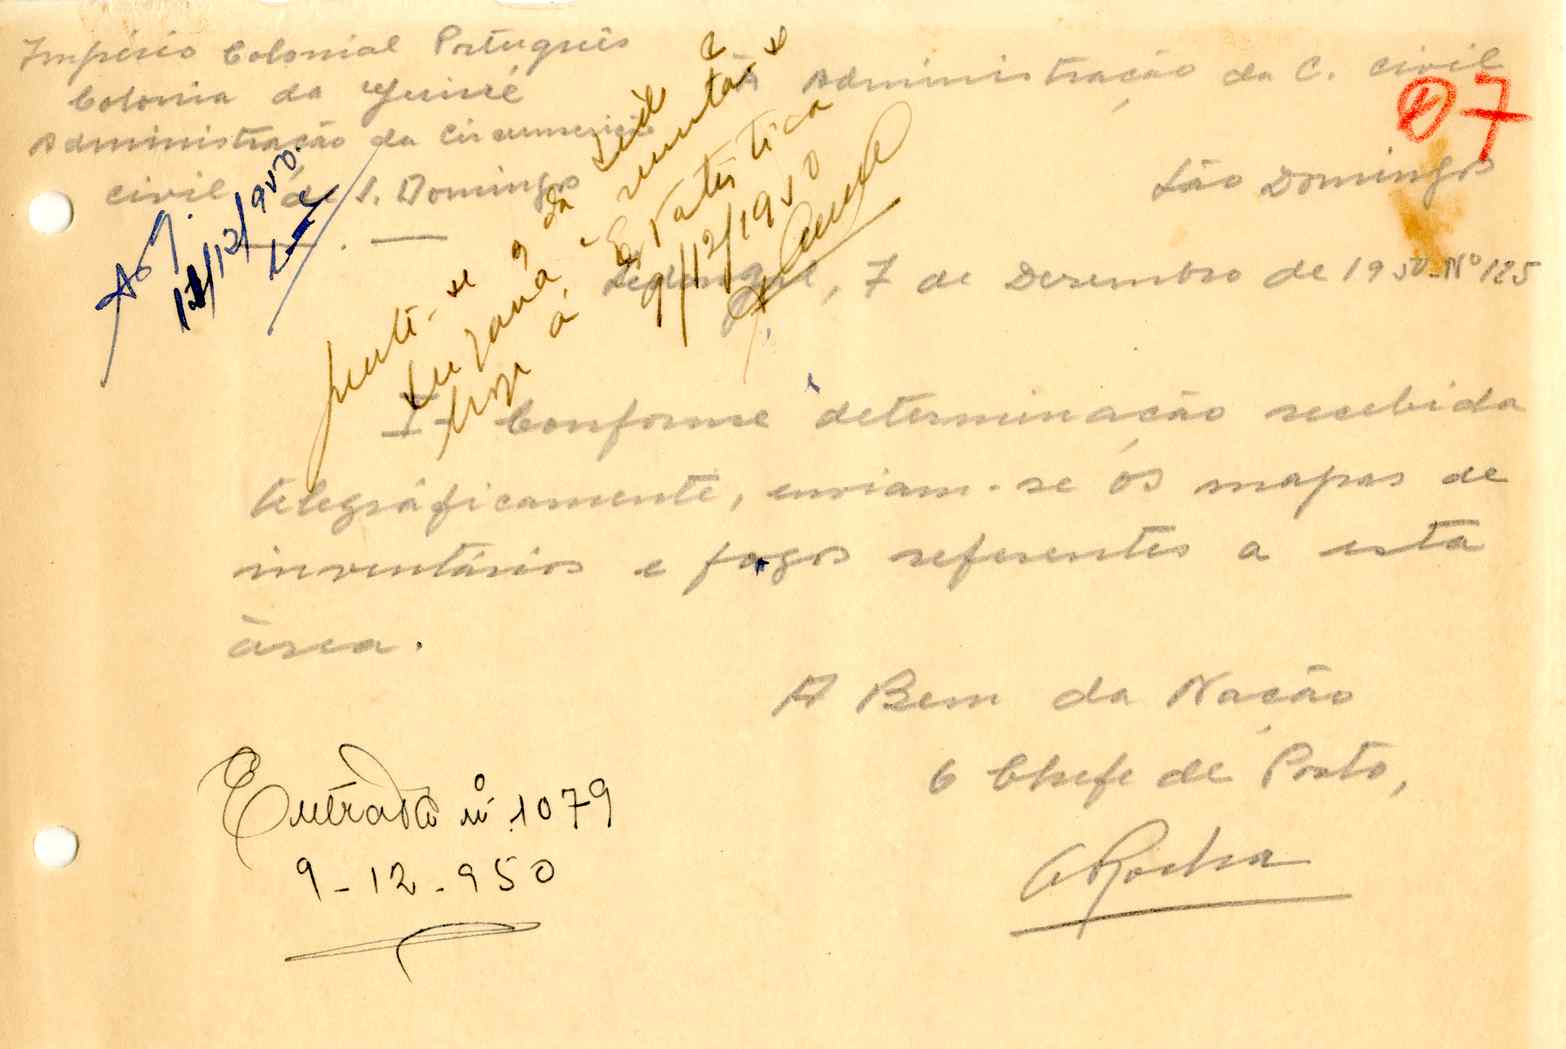 Império Colonial Português
Colonia da Guiné
Administração da Circunscrição
civil de S. Domingos
À Administração da C. civil
São Domingos
7
, 7 de Dezembro de 1950. Nº 125
Ao
12/12/950.
Junte-se
da sede
hoje à Estatística
9/12/1950
I- Conforme determinação recebida
telegráficamente, enviam-se os mapas de
inventários e fogos referentes a esta
àrea.
A Bem da Nação
O Chefe de Posto,
ARocha
Entrada nº 1079
9-12-950